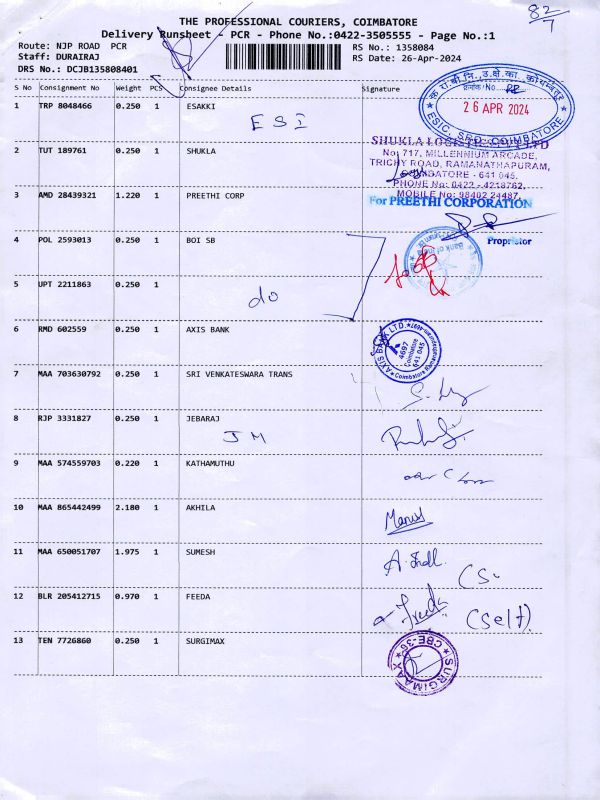 82/7
THE PROFESSIONAL COURIERS, COIMBATORE
Delivery Runsheet - PCR - Phone No.:0422-3505555 - Page No.:1
Route: NJP ROAD PCR RS No.: 1358084
Staff: DURAIRAJ RS Date: 26-Apr-2024
DRS No.: DCJB135808401
S No Consignment No Weight PCS Consignee Details Signature
1 TRP 8048466 0.250 1 ESAKKI
ESI
26 APR 2024
ESIC, SRO, COIMBATORE
2 TUT 189761 0.250 1 SHUKLA
SHUKLA LOGISTICS PVT LTD
No: 717, MILLENNIUM ARCADE,
TRICHY ROAD, RAMANATHAPURAM,
COIMBATORE - 641 045.
PHONE No: 0422 - 4218762,
MOBILE No: 98402 24487
3 AMD 28439321 1.220 1 PREETHI CORP
For PREETHI CORPORATION
Proprietor
4 POL 2593013 0.250 1 BOI SB
Bank of India
5 UPT 2211863 0.250 1
do
6 RMD 602559 0.250 1 AXIS BANK
AXIS BANK LTD.
4697
Coimbatore
641 045
7 MAA 703630792 0.250 1 SRI VENKATESWARA TRANS
8 RJP 3331827 0.250 1 JEBARAJ
JM
9 MAA 574559703 0.220 1 KATHAMUTHU
10 MAA 865442499 2.180 1 AKHILA
11 MAA 650051707 1.975 1 SUMESH
12 BLR 205412715 0.970 1 FEEDA
Freeda (Self)
13 TEN 7726860 0.250 1 SURGIMAX
SURGIMAAX
CBE-36